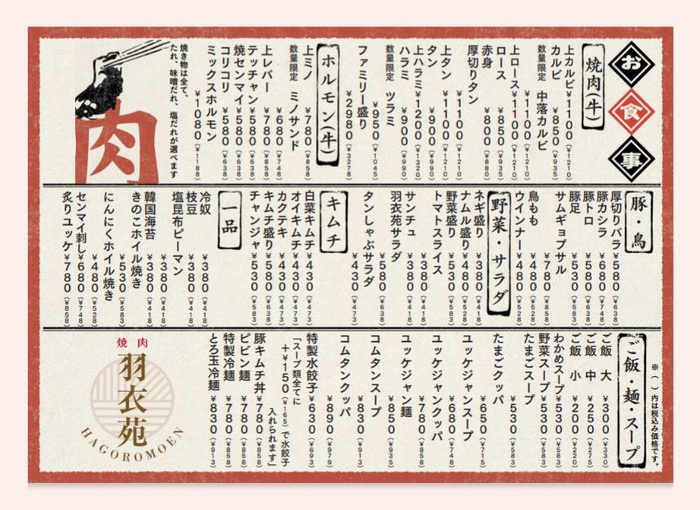 お食事
焼肉(牛)
上カルビ ¥1100(¥1210)
カルビ ¥850(¥935)
数量限定 中落カルビ ¥1100(¥1210)
上ロース ¥1100(¥1210)
ロース ¥850(¥935)
赤身 ¥800(¥880)
厚切りタン ¥1100(¥1210)
上タン ¥1100(¥1210)
タン ¥900(¥990)
上ハラミ ¥1200(¥1320)
ハラミ ¥900(¥990)
数量限定 ツラミ ¥950(¥1045)
ファミリー盛り ¥2980(¥3278)
ホルモン(牛)
上ミノ ¥780(¥858)
数量限定 ミノサンド ¥680(¥748)
上レバー ¥780(¥858)
テッチャン ¥580(¥638)
焼センマイ ¥580(¥638)
コリコリ ¥580(¥638)
ミックスホルモン ¥1080(¥1188)
焼き物は全て、
たれ、味噌だれ、塩だれが選べます
肉
豚・鳥
厚切りバラ ¥580(¥638)
豚カシラ ¥680(¥748)
豚トロ ¥580(¥638)
豚足 ¥530(¥583)
サムギョプサル ¥780(¥858)
鳥もも ¥480(¥528)
ウインナー ¥480(¥528)
野菜・サラダ
ネギ盛り ¥380(¥418)
ナムル盛り ¥480(¥528)
野菜盛り ¥530(¥583)
トマトスライス ¥380(¥418)
サンチュ ¥380(¥418)
羽衣苑サラダ ¥430(¥473)
タンしゃぶサラダ ¥580(¥638)
キムチ
白菜キムチ ¥430(¥473)
オイキムチ ¥430(¥473)
カクテキ ¥430(¥473)
キムチ盛り ¥580(¥638)
チャンジャ ¥530(¥583)
一品
冷奴 ¥380(¥418)
枝豆 ¥380(¥418)
塩昆布ピーマン ¥380(¥418)
韓国海苔 ¥380(¥418)
きのこホイル焼き ¥530(¥583)
にんにくホイル焼き ¥480(¥528)
センマイ刺し ¥680(¥748)
炙りユッケ ¥780(¥858)
※( )内は税込み価格です。
ご飯・麺・スープ
ご飯 大 ¥300(¥330)
ご飯 中 ¥250(¥275)
ご飯 小 ¥200(¥220)
わかめスープ ¥530(¥583)
野菜スープ ¥530(¥583)
たまごスープ ¥530(¥583)
たまごクッパ ¥650(¥715)
ユッケジャンスープ ¥680(¥748)
ユッケジャンクッパ ¥780(¥858)
ユッケジャン麺 ¥850(¥935)
コムタンスープ ¥830(¥913)
コムタンクッパ ¥890(¥979)
特製水餃子 ¥630(¥693)
「スープ類全てに
+¥150(¥165)で水餃子
入れられます」
豚キムチ丼 ¥780(¥858)
ビビン麺 ¥780(¥858)
特製冷麺 ¥780(¥858)
とろ玉冷麺 ¥830(¥913)
焼肉
羽衣苑
HAGOROMOEN